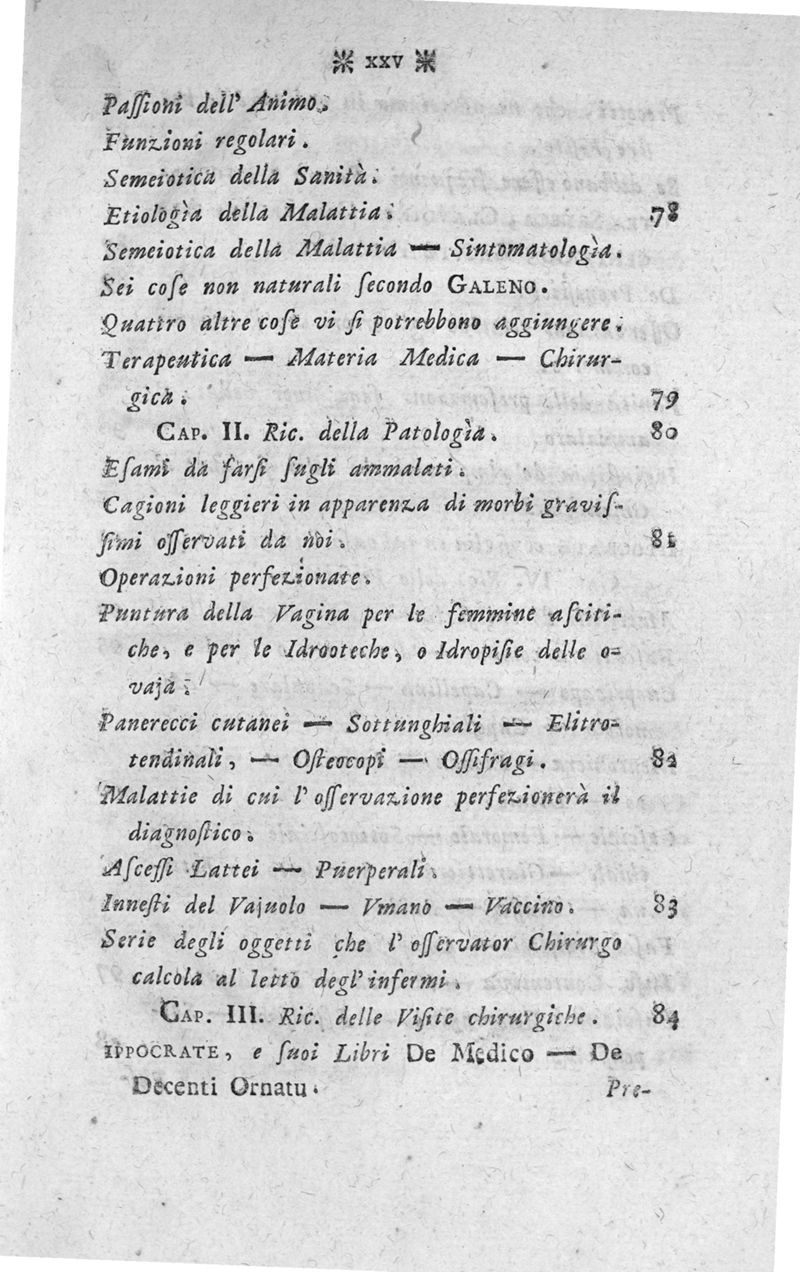 ※ XXV ※
Paſſioni dell' Animo.
Funzioni regolari.
Semeiotica della Sanità.
Etiologìa della Malattia. 78
Semeiotica della Malattia — Sintomatologìa.
Sei coſe non naturali ſecondo GALENO.
Quattro altre coſe vi ſi potrebbono aggiungere.
Terapeutica — Materia Medica — Chirur-
gica. 79
CAP. II. Ric. della Patologìa. 80
Eſami da farſi ſugli ammalati.
Cagioni leggieri in apparenza di morbi graviſ-
ſimi oſſervati da noi. 81
Operazioni perfezionate.
Puntura della Vagina per le femmine aſciti-
che, e per le Idrooteche, o Idropiſie delle o-
vaja.
Panerecci cutanei — Sottunghiali — Elitro-
tendinali, — Oſteocopi — Oſſifragi. 82
Malattie di cui l' oſſervazione perfezionerà il
diagnoſtico.
Aſceſſi Lattei — Puerperali.
Inneſti del Vajuolo — Vmano — Vaccino. 83
Serie degli oggetti che l' oſſervator Chirurgo
calcola al letto degl' infermi.
CAP. III. Ric. delle Viſite chirurgiche. 84
IPPOCRATE, e ſuoi Libri De Medico — De
Decenti Ornatu. Pre-